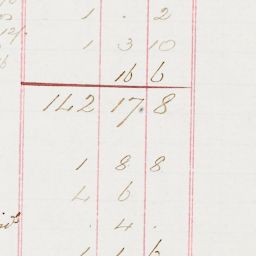 1 . 2
1 3 10
16 6
142 17 8
1 8 8
4 6
. 4 .
1 1 6